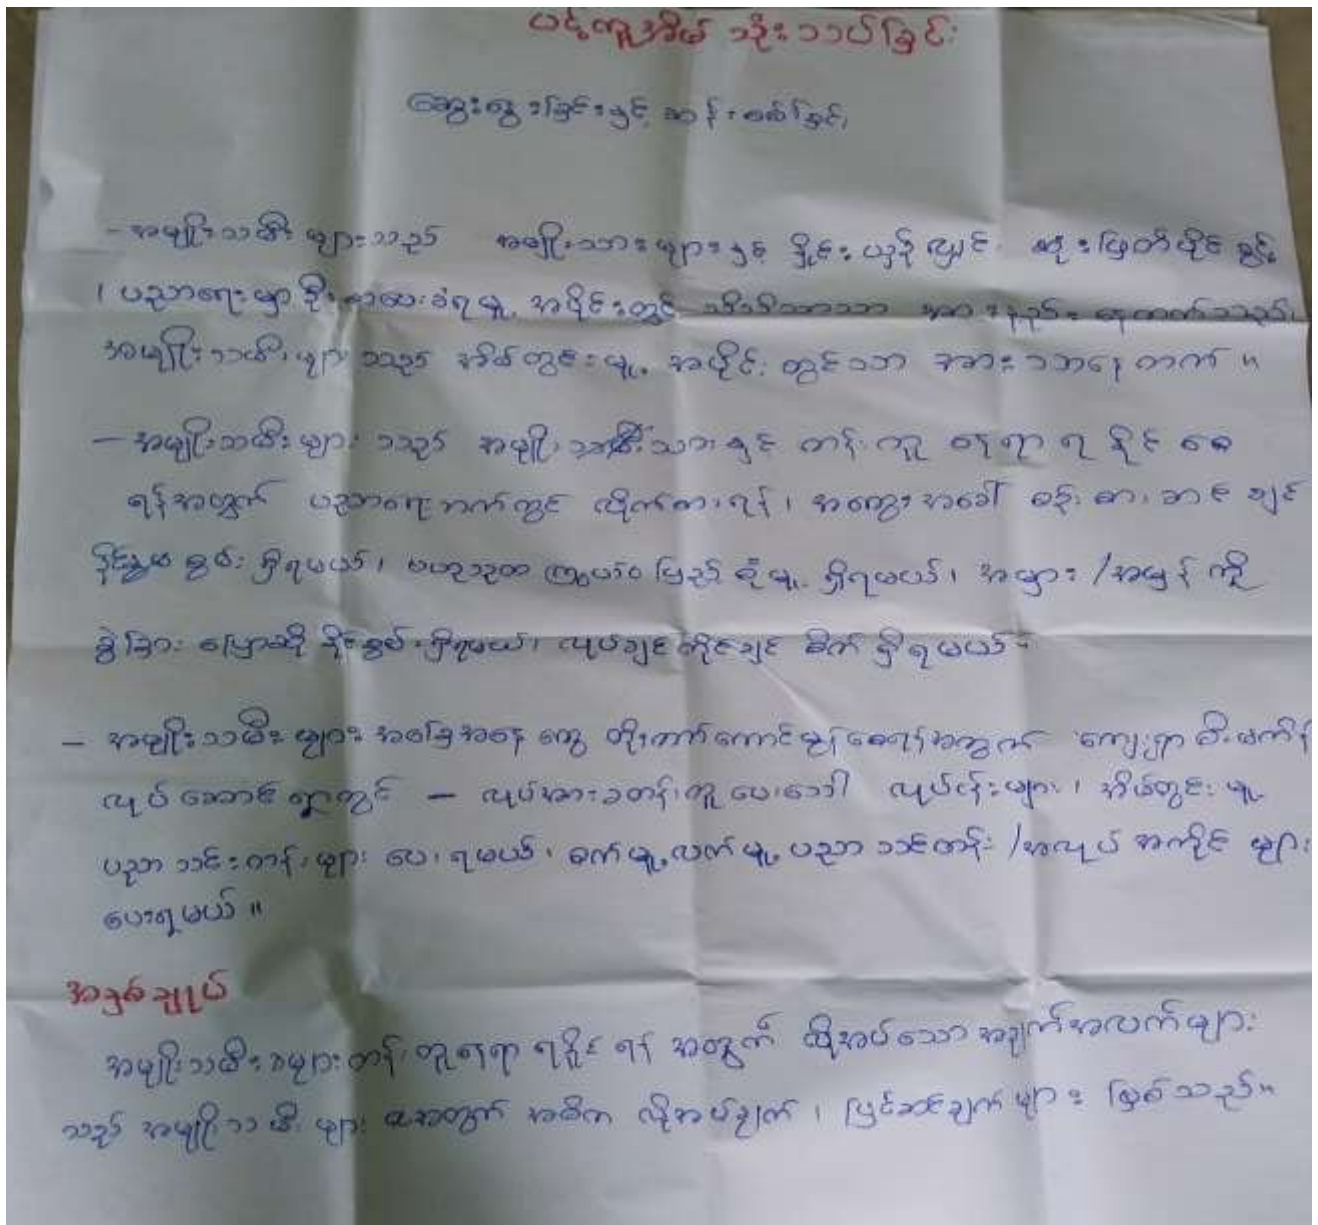 ပင့်ကူအိမ် သုံးသပ်ခြင်း
ဆွေးနွေးခြင်းနှင့် ဆန်းစစ်ခြင်း
- အမျိုးသမီးများသည် အမျိုးသားများနှင့် နှိုင်းယှဉ်လျှင် ဆုံးဖြတ်ပိုင်ခွင့်
၊ ပညာရေးမှာ ဦးစားပေးခံရမှု အပိုင်းတွင် သိသိသာသာ အားနည်းနေတတ်သည်၊
အမျိုးသမီးများသည် အိမ်တွင်းမှု အပိုင်းတွင်သာ အားသာနေတတ်။
- အမျိုးသမီးများသည် အမျိုးသားနှင့် တန်းတူ နေရာရနိုင်စေ
ရန်အတွက် ပညာရေးဘက်တွင် လိုက်စားရန်၊ အတွေးအခေါ် စဉ်းစားဆင်ခြင်
နိုင်စွမ်း ရှိရမယ်၊ ဗဟုသုတ ကြွယ်ဝပြည့်စုံမှု ရှိရမယ်၊ အမှား/အမှန်ကို
ခွဲခြားပြောဆိုနိုင်စွမ်းရှိရမယ်၊ လုပ်ချင်ကိုင်ချင်စိတ်ရှိရမယ်။
- အမျိုးသမီးများအခြေအနေတွေ တိုးတက်ကောင်းမွန်စေရန်အတွက် ကျေးရွာစီမံကိန်
လုပ်ဆောင်ရာတွင် - လုပ်အားခတန်းတူပေးသော လုပ်ငန်းများ၊ အိမ်တွင်းမှု
ပညာသင်တန်းများ ပေးရမယ်၊ စက်မှုလက်မှုပညာသင်တန်း/အလုပ်အကိုင်များ
ပေးရမယ်။
အနှစ်ချုပ်
အမျိုးသမီးများတန်းတူနေရာရရှိနိုင်ရန် အတွက် လိုအပ်သောအချက်အလက်များ
သည် အမျိုးသမီးများအတွက် အဓိက လိုအပ်ချက်၊ ပြင်ဆင်ချက်များ ဖြစ်သည်။